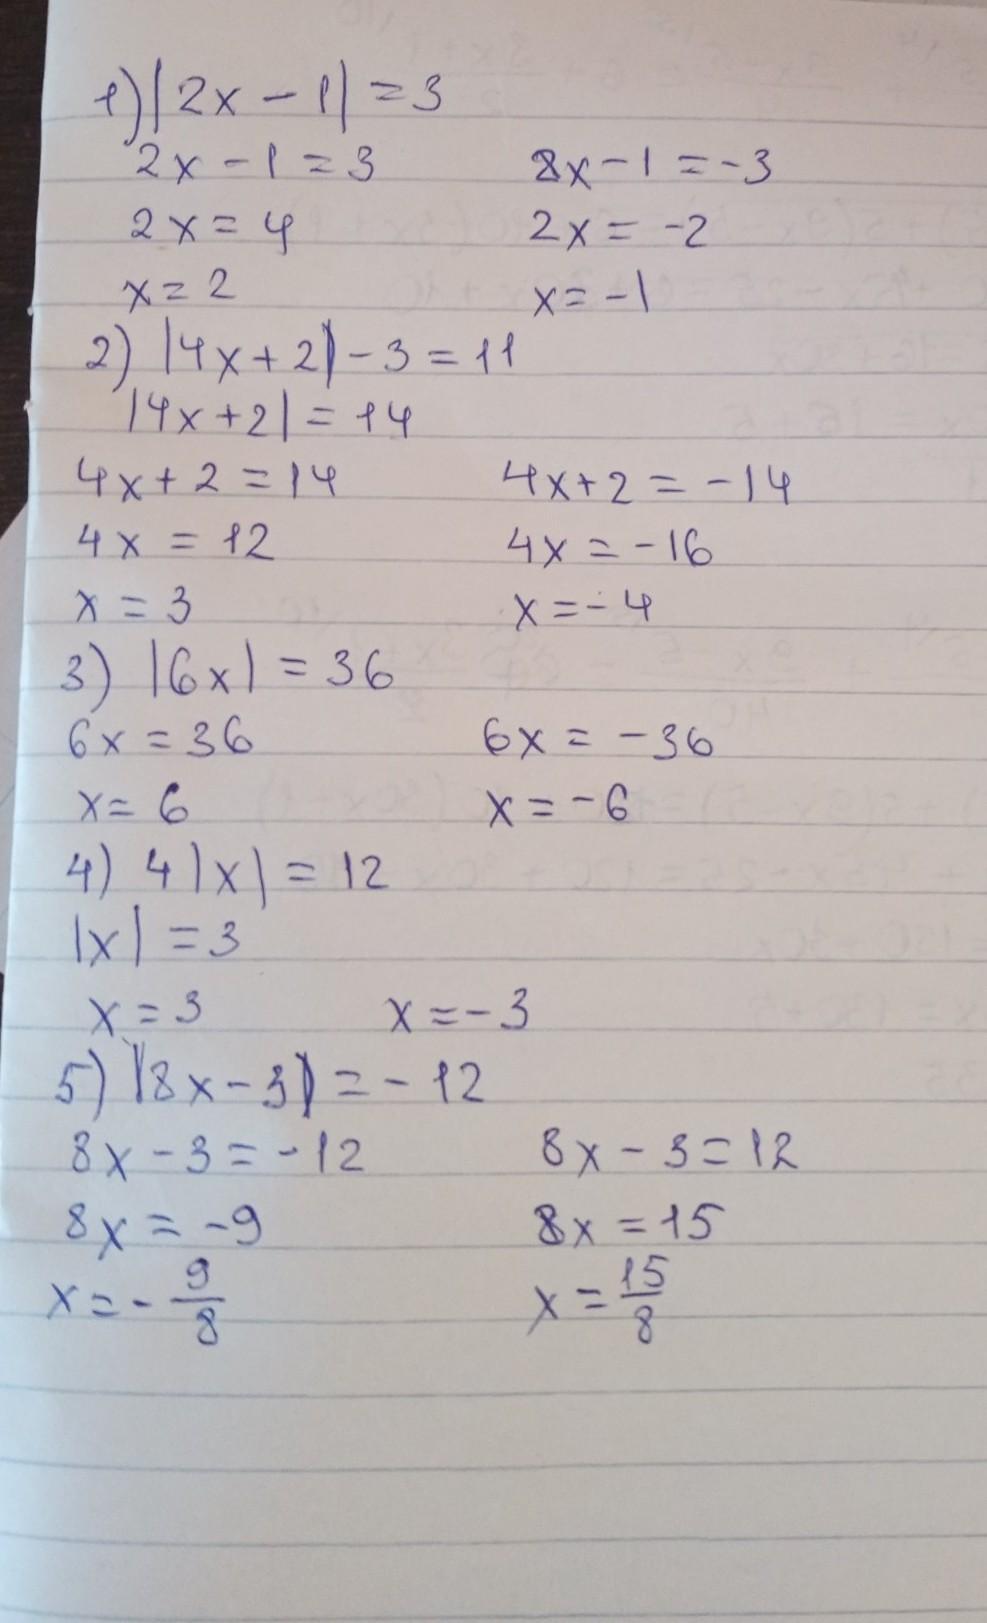 1) |2x - 1| = 3
2x - 1 = 3 2x - 1 = -3
2x = 4 2x = -2
x = 2 x = -1
2) |4x + 2| - 3 = 11
|4x + 2| = 14
4x + 2 = 14 4x + 2 = -14
4x = 12 4x = -16
x = 3 x = -4
3) |6x| = 36
6x = 36 6x = -36
x = 6 x = -6
4) 4|x| = 12
|x| = 3
x = 3 x = -3
5) |8x - 3| = -12
8x - 3 = -12 8x - 3 = 12
8x = -9 8x = 15
x = -9/8 x = 15/8